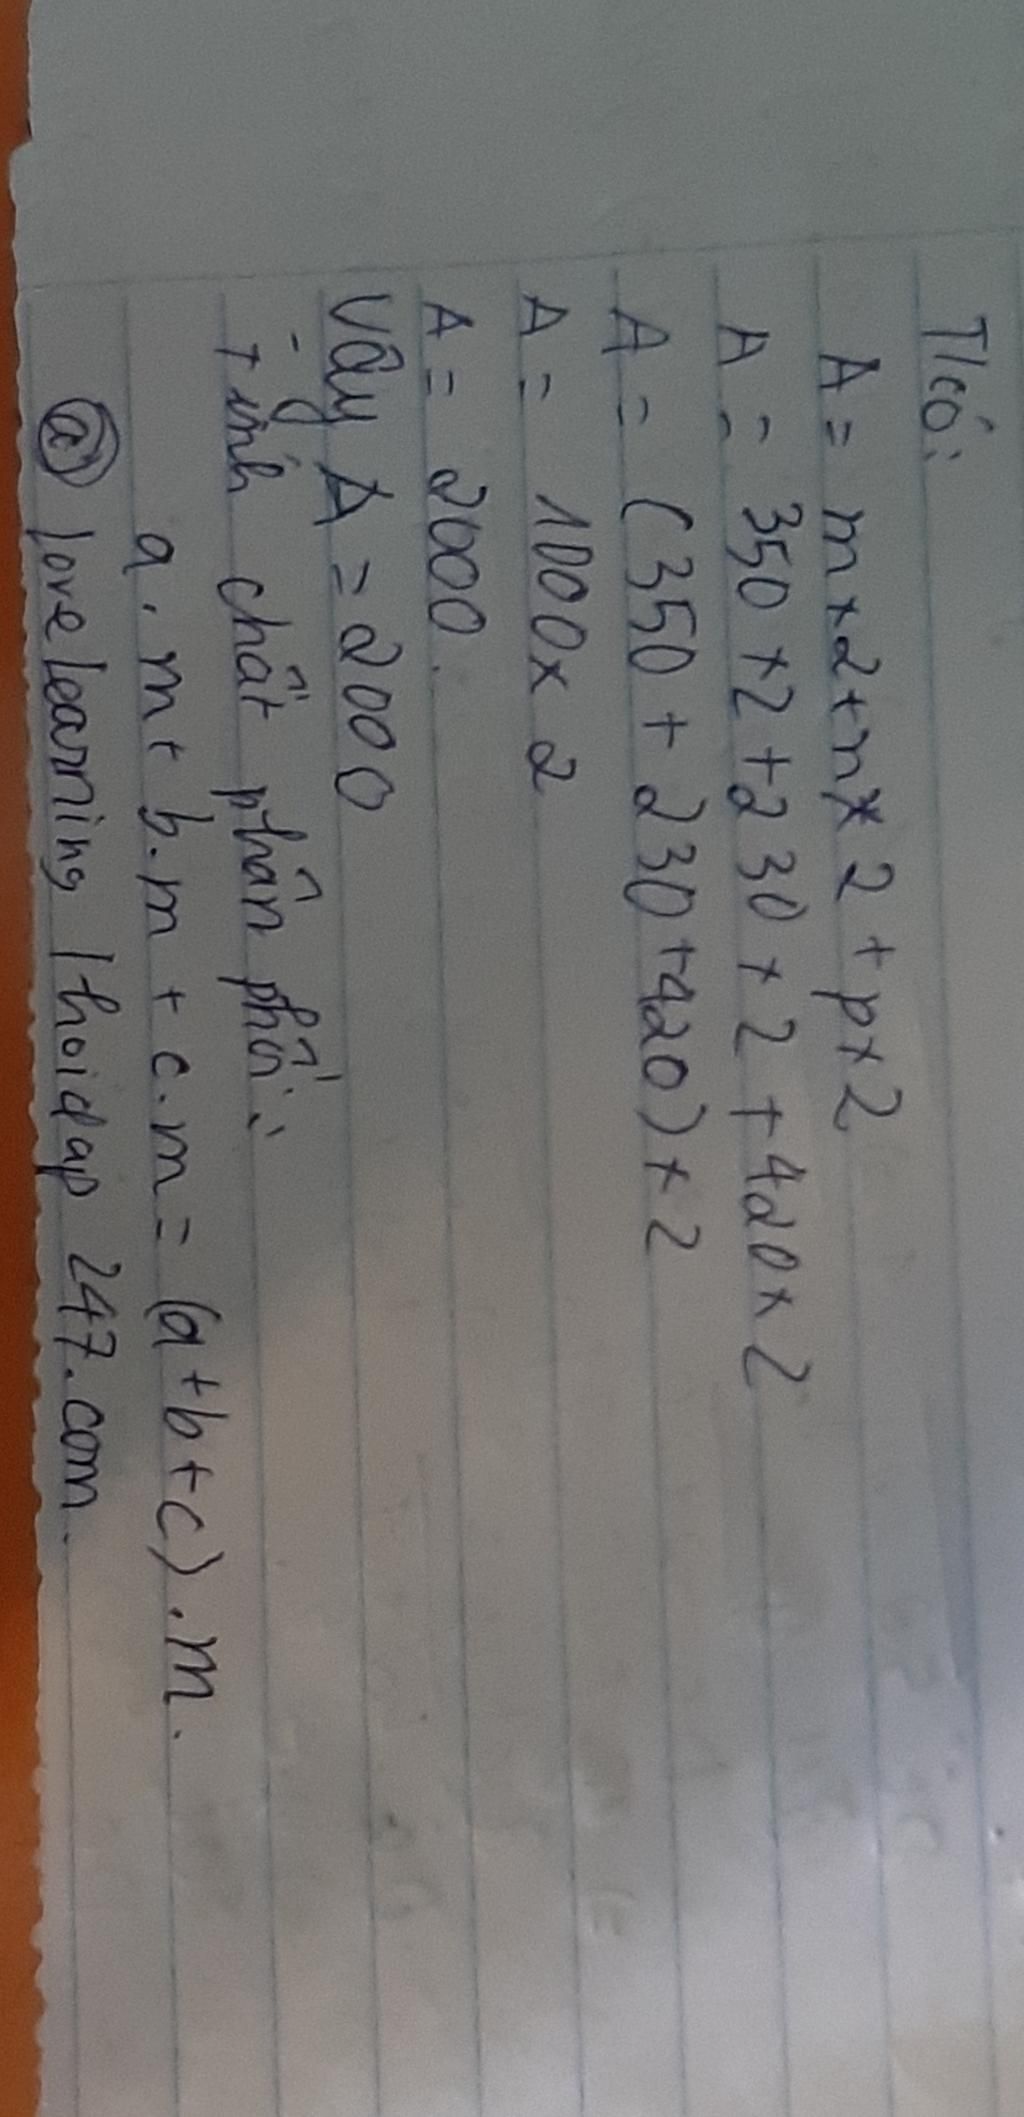 T/có:
A = m x 2 + n x 2 + p x 2
A = 350 x 2 + 230 x 2 + 420 x 2
A = (350 + 230 + 420) x 2
A = 1000 x 2
A = 2000.
Vậy A = 2000
- Tính chất phân phối:
a.m + b.m + c.m = (a + b + c).m.
@ love learning / hoidap 247.com.